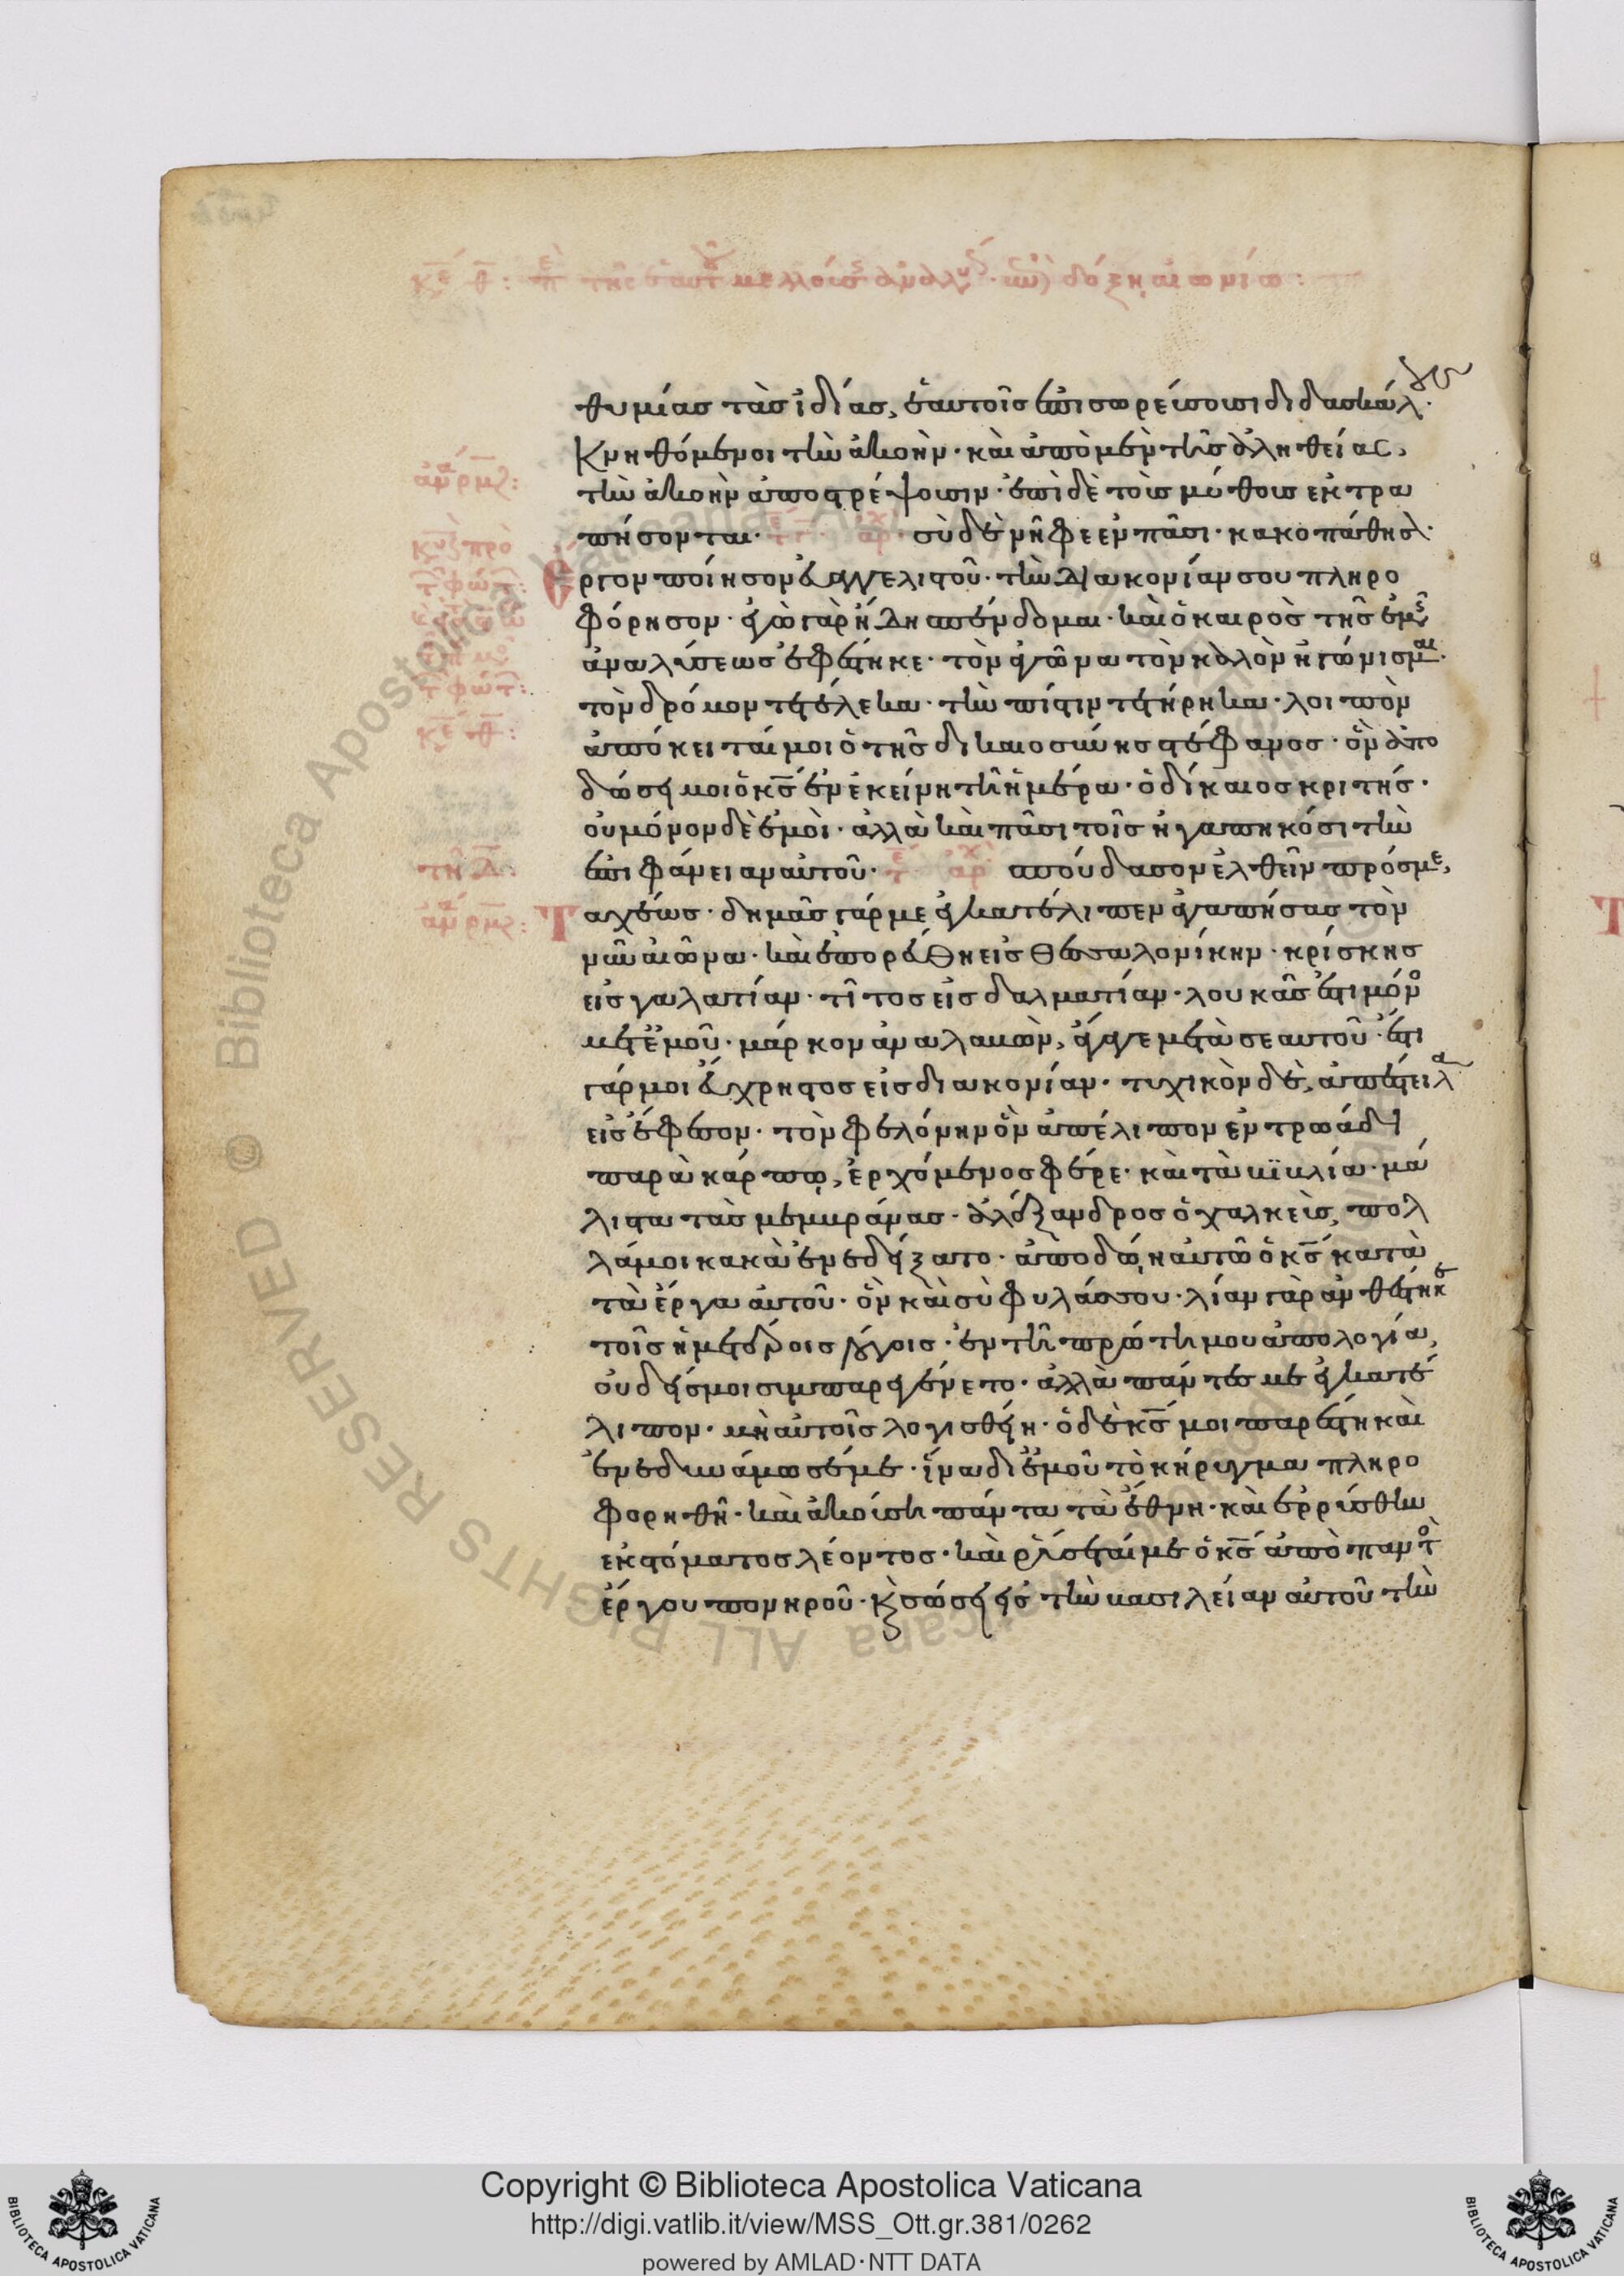 θυμίας τὰς ἰδίας, ἑαυτοῖς ἐπισωρεύσουσι διδασκάλους·
Κνηθόμενοι τὴν ἀκοὴν· καὶ ἀπὸ μὲν τῆς ἀληθείας,
τὴν ἀκοὴν ἀποστρέψουσιν· ἐπὶ δὲ τοὺς μύθους ἐκτρα
πήσονται· σὺ δὲ νῆφε ἐν πᾶσι· κακοπάθησον·
ἔργον ποίησον εὐαγγελιστοῦ· τὴν διακονίαν σου πληρο
φόρησον· ἐγὼ γὰρ ἤδη σπένδομαι· καὶ ὁ καιρὸς τῆς ἐμῆς
ἀναλύσεως ἐφέστηκε· τὸν ἀγῶνα τὸν καλὸν ἠγώνισμαι·
τὸν δρόμον τετέλεκα· τὴν πίστιν τετήρηκα· λοιπὸν
ἀπόκειταί μοι ὁ τῆς δικαιοσύνης στέφανος· ὃν ἀπο
δώσει μοι ὁ κς ἐν ἐκείνη τῆ ἡμέρα· ὁ δίκαιος κριτής·
οὐ μόνον δὲ ἐμοὶ· ἀλλὰ καὶ πᾶσι τοῖς ἠγαπηκόσι τὴν
ἐπιφάνειαν αὐτοῦ· σπούδασον ἐλθεῖν πρός με,
Ταχέως· δημᾶς γάρ με ἐγκατέλιπεν ἀγαπήσας τὸν
νῦν αἰῶνα· καὶ ἐπορεύθη εἰς θεσσαλονίκην· κρίσκης
εἰς γαλατίαν· τῖτος εἰς δαλματίαν· λουκᾶς ἐστι μόνος
μετ' ἐμοῦ· μάρκον ἀναλαβὼν, ἄγαγε μετὰ σεαυτοῦ· ἔστι
γάρ μοι εὔχρηστος εἰς διακονίαν· τυχικὸν δὲ, ἀπέστειλα
εἰς ἔφεσον· τὸν φελόνην ὃν ἀπέλιπον ἐν τρωάδι
παρὰ κάρπῳ, ἐρχόμενος φέρε· καὶ τὰ βιβλία· μά
λιστα τὰς μεμβράνας· ἀλέξανδρος ὁ χαλκεὺς, πολ
λά μοι κακὰ ἐνεδείξατο· ἀποδώῃ αὐτῶ ὁ κς κατὰ
τὰ ἔργα αὐτοῦ· ὃν καὶ σὺ φυλάσσου· λίαν γὰρ ἀνθέστηκε
τοῖς ἡμετέροις λόγοις· ἐν τῆ πρώτη μου ἀπολογία,
οὐδείς μοι συμπαρεγένετο· ἀλλὰ πάντες με ἐγκατέ
λιπον· μὴ αὐτοῖς λογισθείη· ὁ δὲ κς μοι παρέστη καὶ
ἐνεδυνάμωσέ με· ἵνα δι' ἐμοῦ τὸ κήρυγμα πληρο
φορηθῆ· καὶ ἀκούση πάντα τὰ ἔθνη· καὶ ἐρρύσθην
ἐκ στόματος λέοντος· καὶ ῥύσεταί με ὁ κς ἀπὸ παντὸς
ἔργου πονηροῦ· κ̀ σώσει εἰς τὴν βασιλείαν αὐτοῦ τὴν
Copyright © Biblioteca Apostolica Vaticana
http://digi.vatlib.it/view/MSS_Ott.gr.381/0262
powered by AMLAD·NTT DATA
BIBLIOTECA APOSTOLICA VATICANA
BIBLIOTECA APOSTOLICA VATICANA